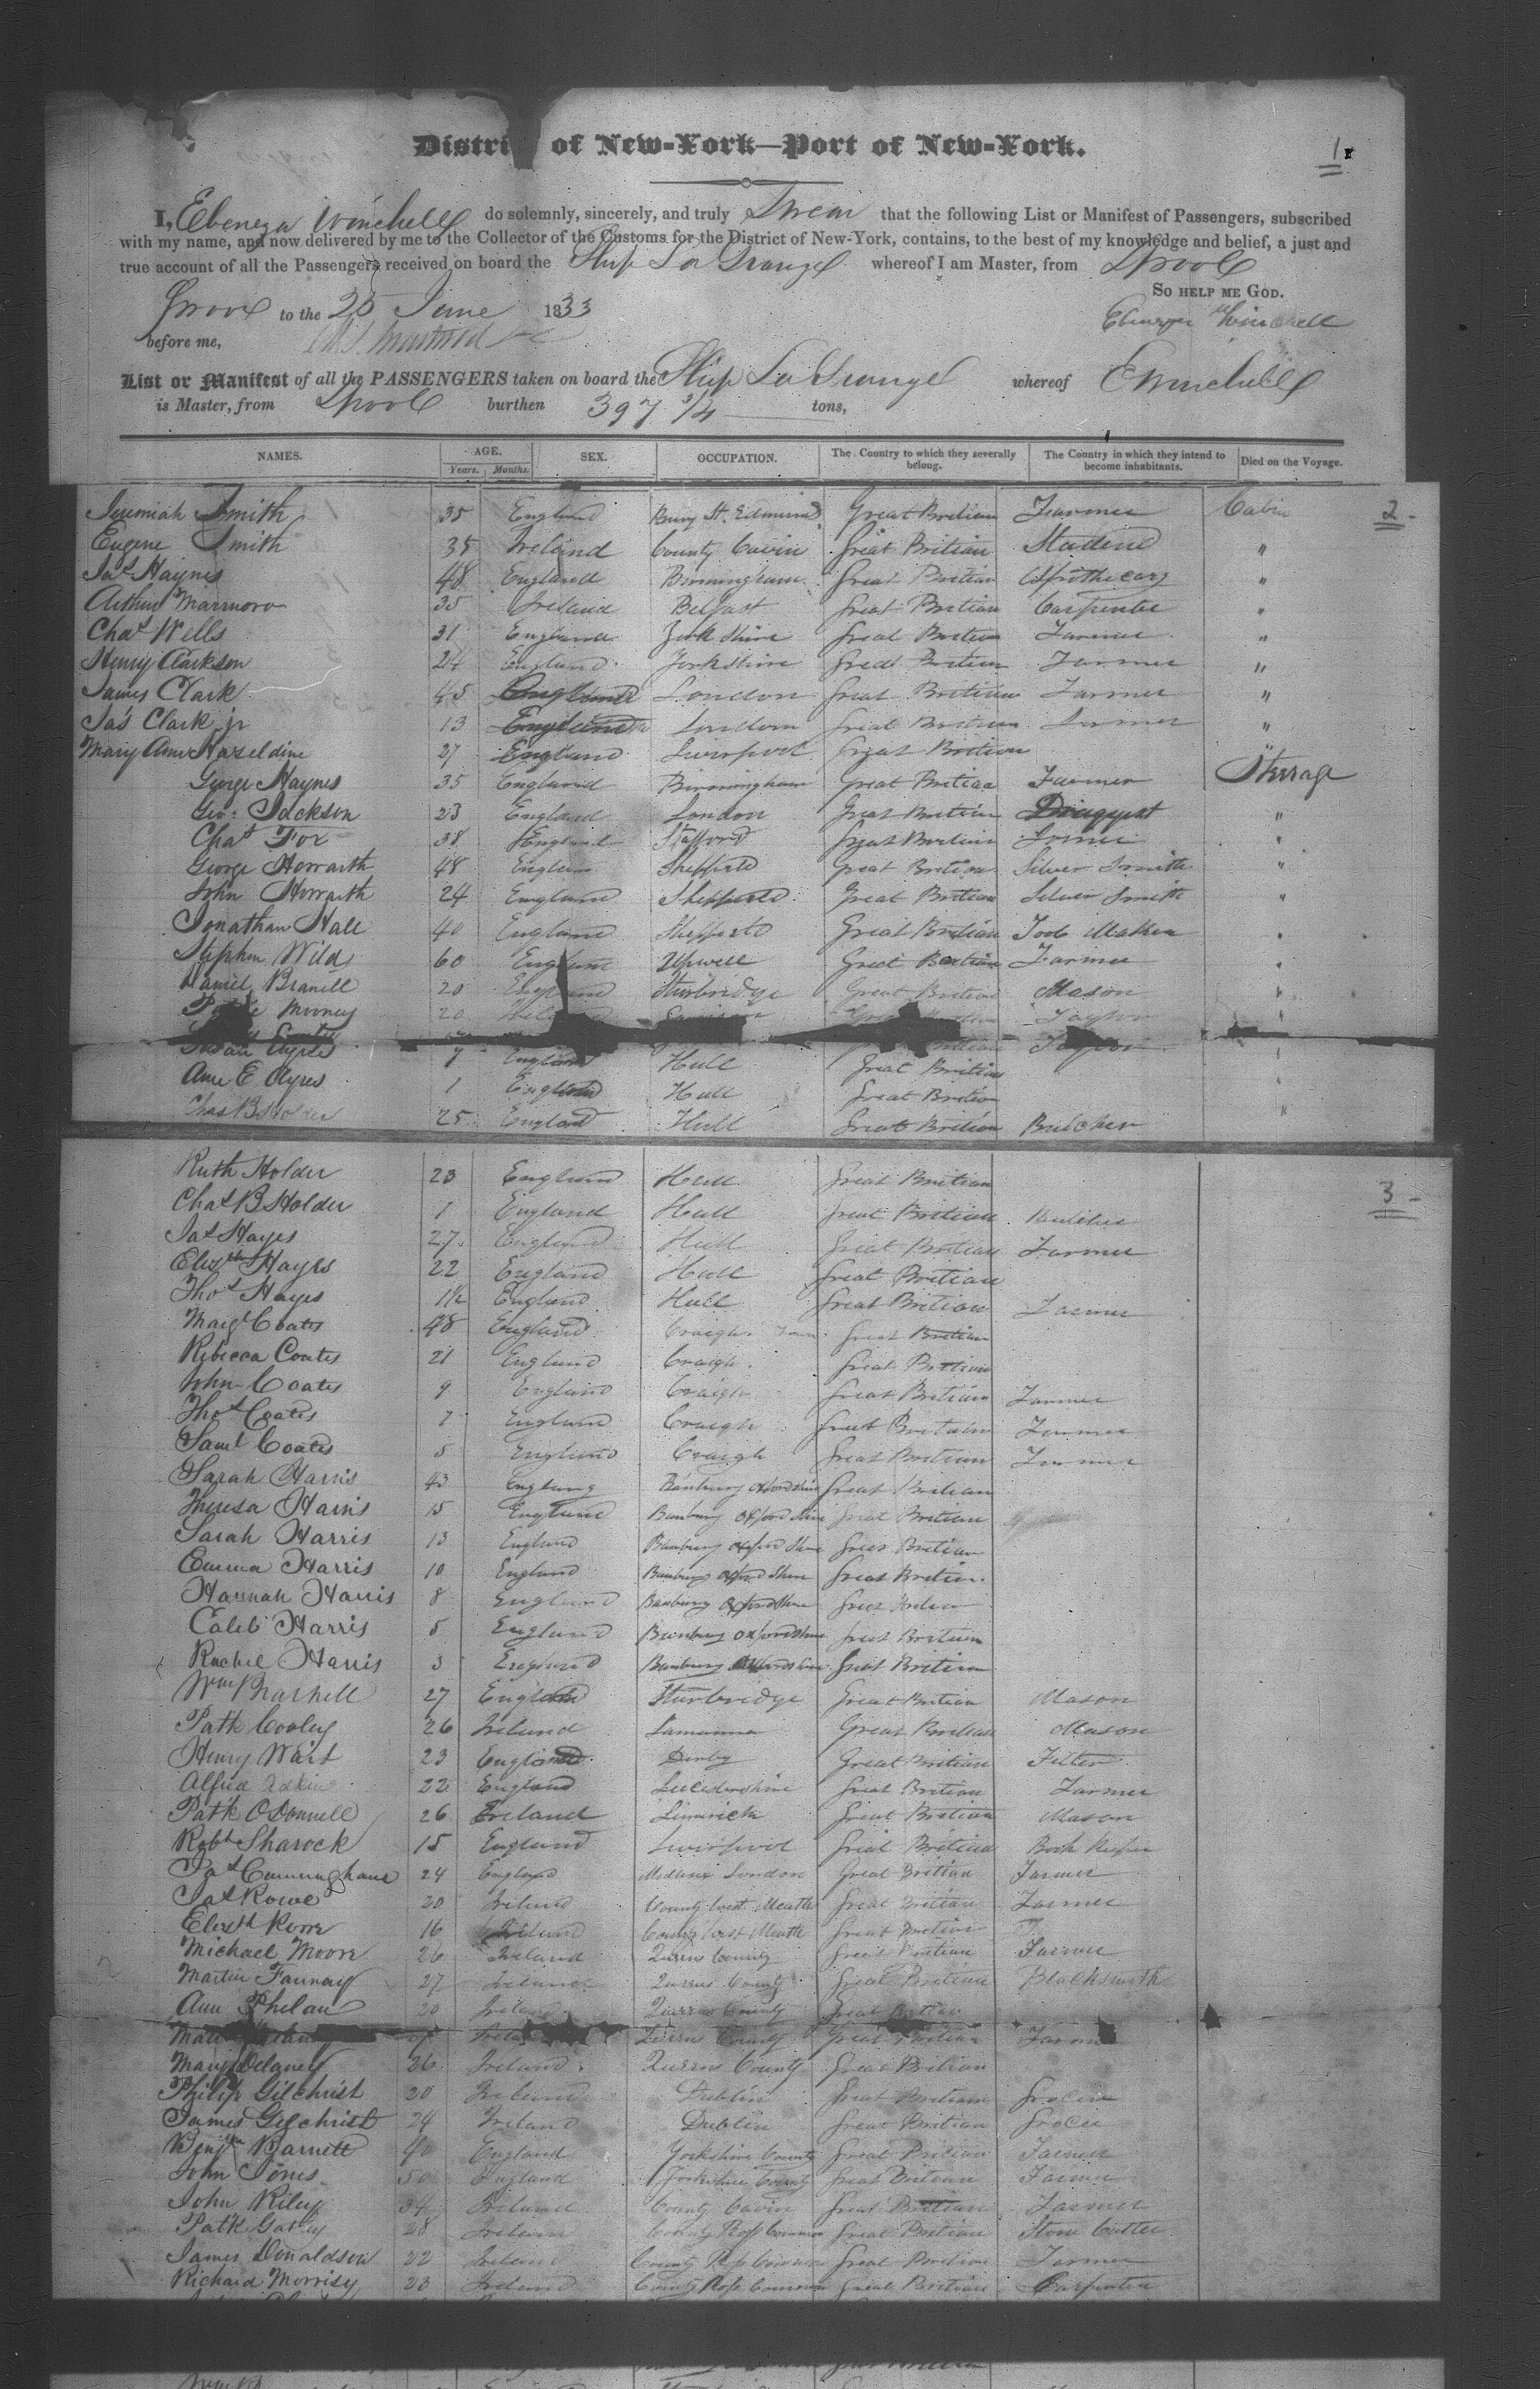 District of New-York—Port of New-York.
1
I, Ebenezer Winchell do solemnly, sincerely, and truly Swear that the following List or Manifest of Passengers, subscribed
with my name, and now delivered by me to the Collector of the Customs for the District of New-York, contains, to the best of my knowledge and belief, a just and
true account of all the Passengers received on board the Ship La Grange whereof I am Master, from Lpool
So help me God.
to the 25 June 1833
Ebenezer Winchell
before me,
List or Manifest of all the PASSENGERS taken on board the Ship La Grange whereof E Winchell
is Master, from Lpool burthen 397 3/4 tons,
NAMES. AGE. Years. Months. SEX. OCCUPATION. The Country to which they severally belong. The Country in which they intend to become inhabitants. Died on the Voyage.
Jeremiah Smith 35 England Bury St. Edmund Great Britian Farmer Cabin 2
Eugene Smith 35 Ireland County Cavin Great Britian Student "
Jas Haynes 48 England Birmingham Great Britian Apothecary "
Arthur Marmoro 35 Ireland Belfast Great Britian Carpenter "
Chas Wells 31 England York Shire Great Britian Farmer "
Henry Clarkson 24 England Yorkshire Great Britian Farmer "
James Clark 45 England London Great Britian Farmer "
Jas Clark jr 13 England London Great Britian Farmer "
Mary Ann Hazeldine 27 England Liverpool Great Britian "
George Haynes 35 England Birmingham Great Britian Farmer Sterrage
Geo: Jackson 23 England London Great Britian Druggist "
Chas Fox 38 England Stafford Great Britian "
George Horrarth 48 England Sheffield Great Britian Silver Smith "
John Horrarth 24 England Sheffield Great Britian Silver Smith "
Jonathan Hall 40 England Sheffield Great Britian Tool Maker "
Stephen Wild 60 England Upwell Great Britian Farmer "
Daniel Branell 20 England Sturbridge Great Britian Mason "
Mooney 20 Great Britian Taylor "
Susan Ayres 7 England Hull Great Britian "
Ann E Ayres 1 England Hull Great Britian "
Chas B Holder 25 England Hull Great Britian Butcher "
Ruth Holder 23 England Hull Great Britian
Chas B Holder 1 England Hull Great Britian 3
Jas Hayes 27 England Hull Great Britian Farmer
Elizth Hayes 22 England Hull Great Britian
Thos Hayes 1½ England Hull Great Britian Farmer
Margt Coates 48 England Craigh Great Britian
Rebecca Coates 21 England Craigh Great Britian
John Coates 9 England Craigh Great Britian Farmer
Thos Coates 7 England Craigh Great Britain Farmer
Saml Coates 5 England Craigh Great Britian Farmer
Sarah Harris 43 England Banbury Oxfordshire Great Britian
Theresa Harris 15 England Banbury Oxfordshire Great Britian
Sarah Harris 13 England Banbury Oxfordshire Great Britian
Emma Harris 10 England Banbury Oxfordshire Great Britian
Hannah Harris 8 England Banbury Oxfordshire Great Britian
Caleb Harris 5 England Banbury Oxfordshire Great Britian
Rachel Harris 3 England Banbury Oxfordshire Great Britian
Wm Brashell 27 England Sturbridge Great Britian Mason
Patk Cooley 26 Ireland Great Britian Mason
Henry Wait 23 England Derby Great Britian
Alfred Adkins 22 England Great Britian Farmer
Patk O Donnell 26 Ireland Limerick Great Britian Mason
Robt Sharock 15 England Liverpool Great Britian Book Keeper
Jas Cunningham 24 England London Great Britian Farmer
Jas Rowe 20 Ireland County West Meath Great Britian Farmer
Elizth Rowe 16 Ireland County West Meath Great Britian
Michael Moore 26 Ireland Queens County Great Britian Farmer
Martin Faunay 27 Ireland Queens County Great Britian Blacksmith
Ann Phelan 20 Ireland Queens County Great Britian
Ireland Queens County Great Britian Farmer
Mary Delaney 26 Ireland Queens County Great Britian
Philip Gilchrist 20 Ireland Dublin Great Britian Grocer
James Gilchrist 24 Ireland Dublin Great Britian Grocer
Benjn Barnett 40 England Yorkshire County Great Britian Farmer
John Jones 50 England Yorkshire County Great Britian Farmer
John Riley 34 Ireland County Cavin Great Britian Farmer
Patk 28 Ireland County Ross Common Great Britian Stone Cutter
James Donaldson 22 Ireland County Ross Common Great Britian Farmer
Richard Morrisy 23 Ireland County Ross Common Great Britian Carpenter